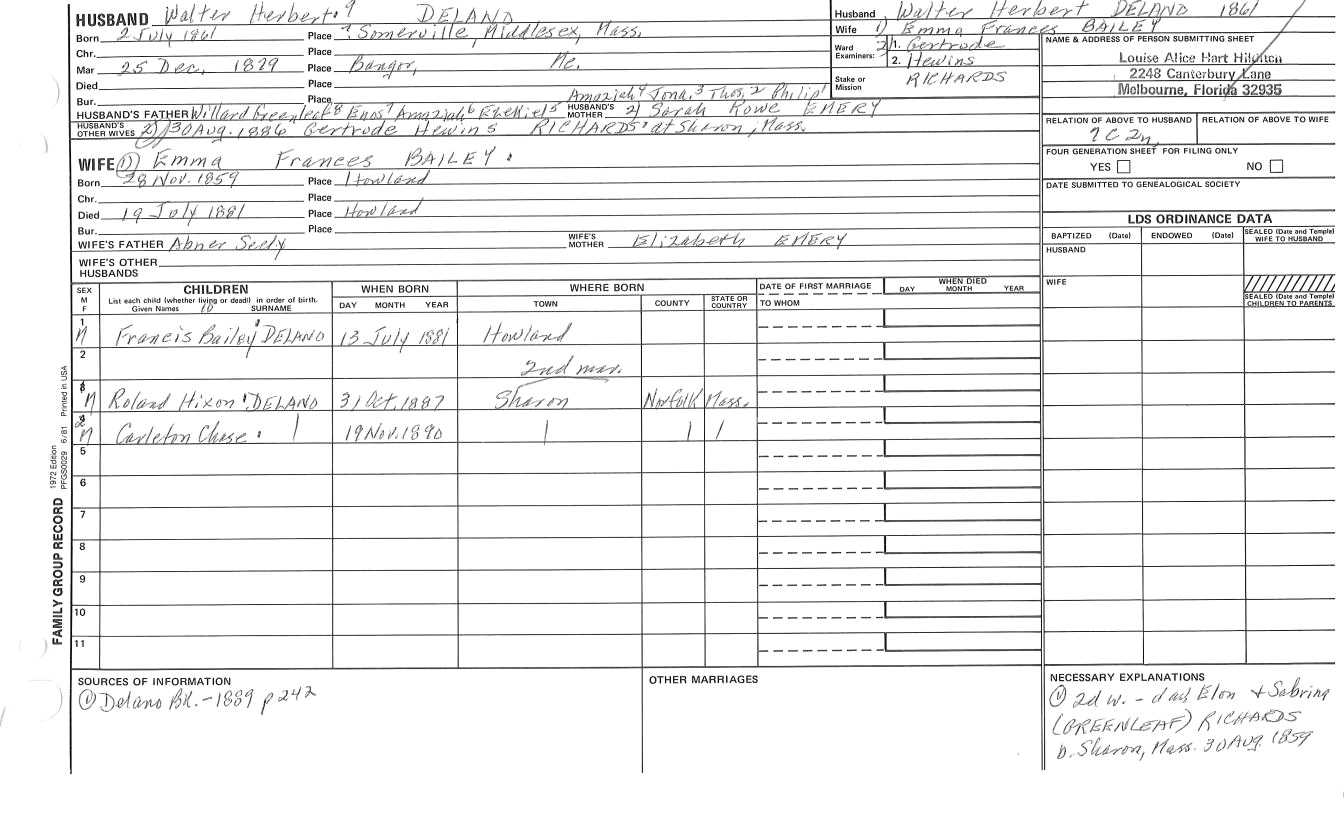 HUSBAND Walter Herbert 9 DELAND
Born 2 July 1861 Place ? Somerville, Middlesex, Mass.
Chr. Place
Mar 25 Dec. 1879 Place Bangor, Me.
Died Place
Bur. Place Amaziah 4 Jona. 3 Thos. 2 Philip 1
HUSBAND'S FATHER Willard Greenleaf 8 Enos 7 Amaziah 6 Ezekiel 5 HUSBAND'S MOTHER 2) Sarah Rowe EMERY
HUSBAND'S OTHER WIVES 2) 30 Aug. 1886 Gertrude Hewins RICHARDS at Sharon, Mass.
WIFE (1) Emma Frances BAILEY
Born 28 Nov. 1859 Place Howland
Chr. Place
Died 19 July 1881 Place Howland
Bur. Place
WIFE'S FATHER Abner Seely WIFE'S MOTHER Elizabeth EMERY
WIFE'S OTHER HUSBANDS
Husband Walter Herbert DELAND 1861
Wife 1) Emma Frances BAILEY
Ward Examiners: 2) 1. Gertrude
2. Hewins
Stake or Mission RICHARDS
NAME & ADDRESS OF PERSON SUBMITTING SHEET
Louise Alice Hart
2248 Canterbury Lane
Melbourne, Florida 32935
RELATION OF ABOVE TO HUSBAND RELATION OF ABOVE TO WIFE
7C 2r
FOUR GENERATION SHEET FOR FILING ONLY
YES NO
DATE SUBMITTED TO GENEALOGICAL SOCIETY
LDS ORDINANCE DATA
BAPTIZED (Date) ENDOWED (Date) SEALED (Date and Temple) WIFE TO HUSBAND
HUSBAND
WIFE
SEALED (Date and Temple) CHILDREN TO PARENTS
SEX M F CHILDREN WHEN BORN WHERE BORN DATE OF FIRST MARRIAGE WHEN DIED
List each child (whether living or dead) in order of birth.
Given Names 10 SURNAME DAY MONTH YEAR TOWN COUNTY STATE OR COUNTRY TO WHOM DAY MONTH YEAR
1 M Francis Bailey DELAND 13 July 1881 Howland
2 2nd mar.
M Roland Hixon DELAND 31 Oct. 1887 Sharon Norfolk Mass.
M Carleton Chase 19 Nov. 1890
5
6
7
8
9
10
11
FAMILY GROUP RECORD
1972 Edition
PFGS0029 6/81 Printed in USA
SOURCES OF INFORMATION
(1) Delano Bk. - 1889 p 242
OTHER MARRIAGES
NECESSARY EXPLANATIONS
(1) 2d w. - dau Elon + Sabrina
(GREENLEAF) RICHARDS
b. Sharon, Mass. 30 Aug. 1859